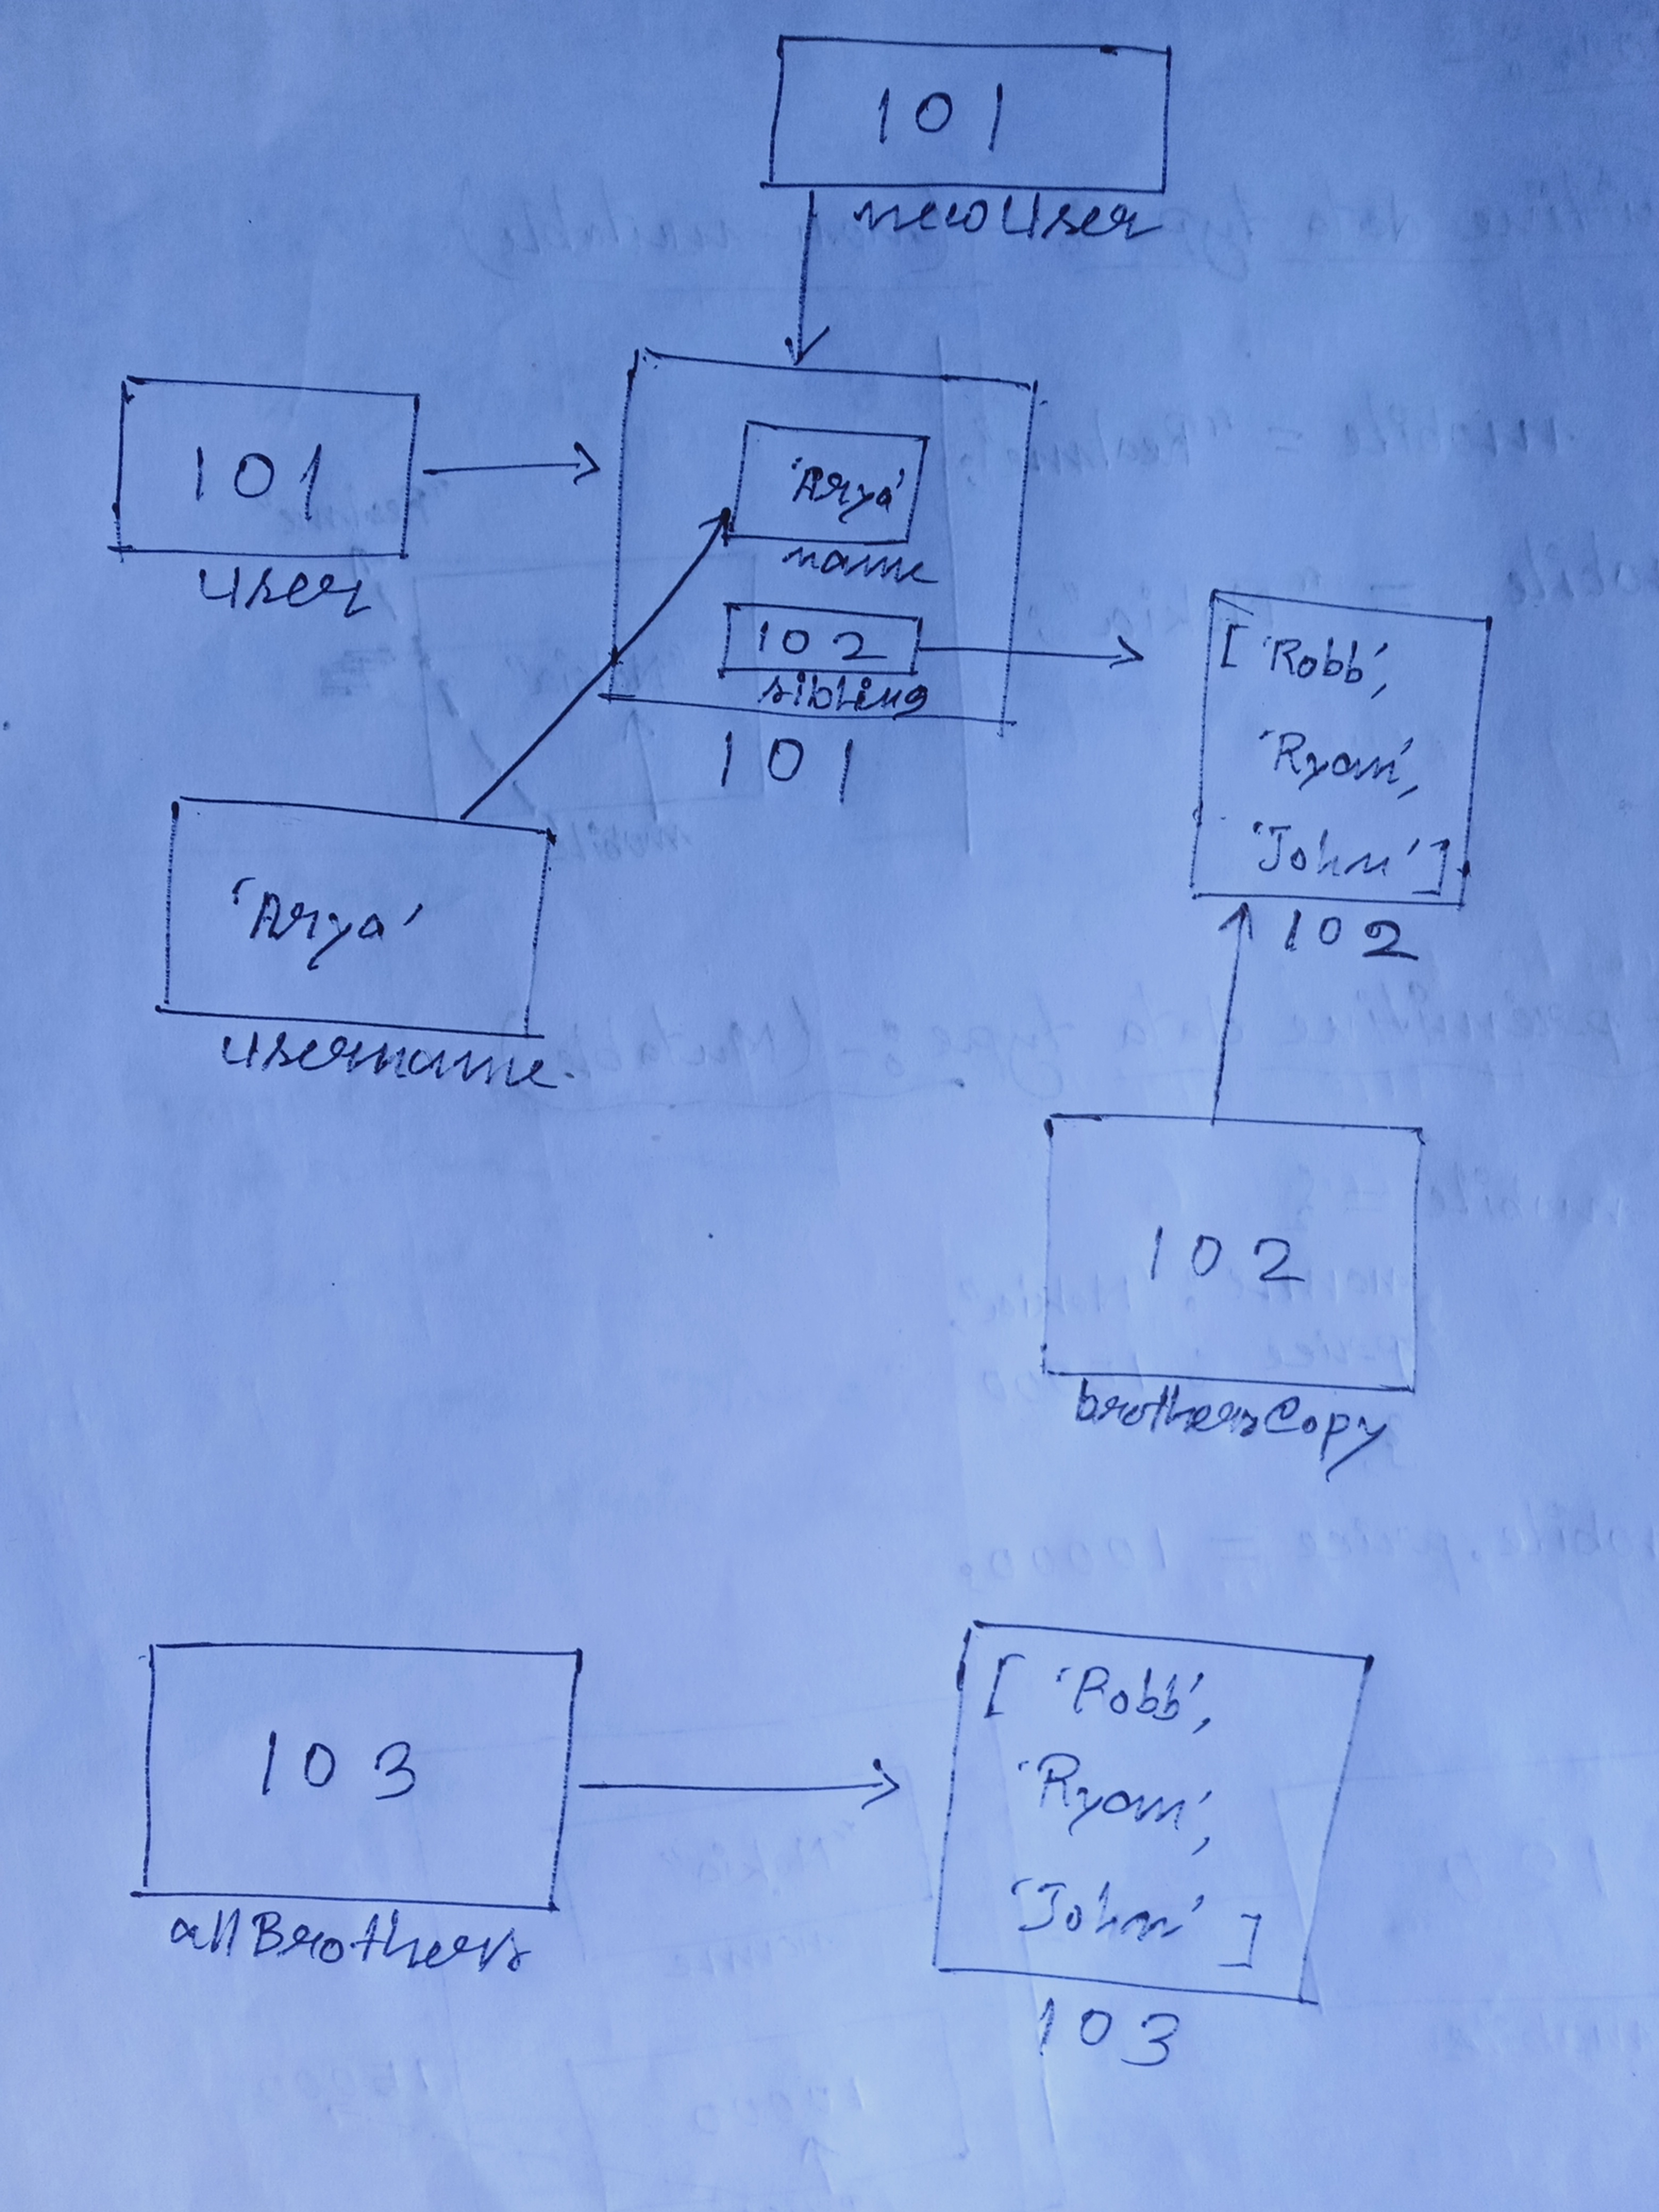 101
newUser
101
user
'Arya'
name
102
sibling
101
['Robb',
'Ryan',
'John']
102
'Arya'
username.
102
brothersCopy
103
allBrothers
['Robb',
'Ryan',
'John']
103